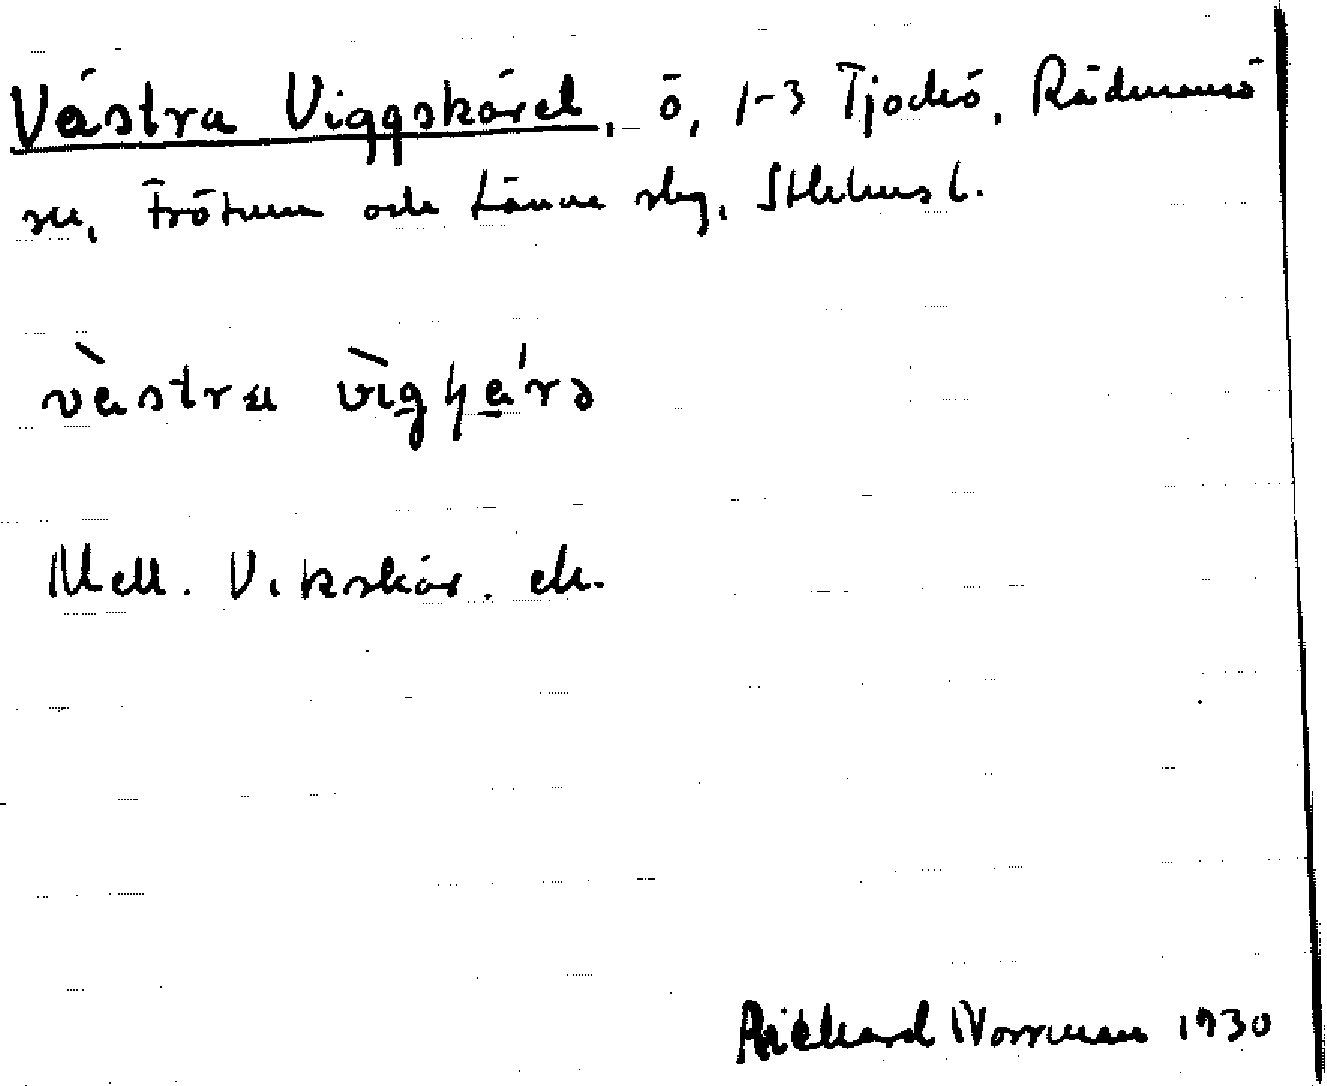 Västra Viggskäret, ö, 1-3 Tjockö, Rådmansö
sn, Frötuna och Länna slg, Sthlms l.
västra vigʂɛ́rə
Mell. Vikskär. ek.
Rickard Norrman 1930